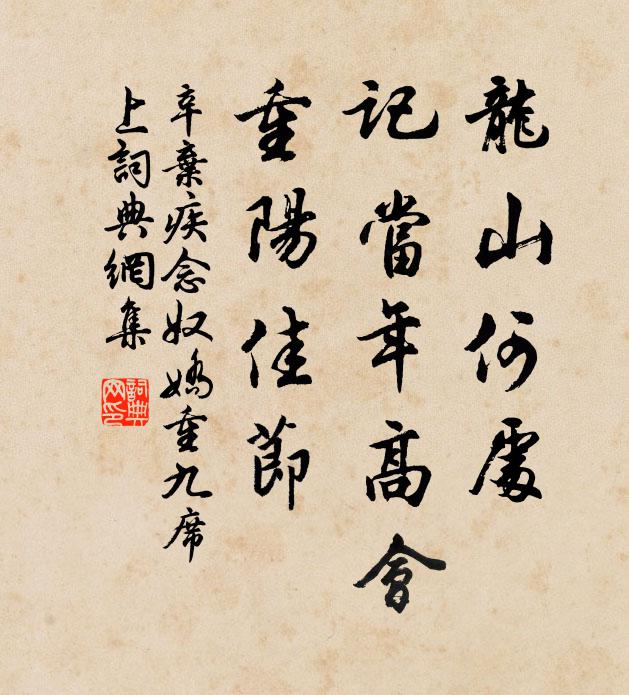 龍山何處
記當年高會
重陽佳節
辛棄疾念奴嬌重九席
上詞典網集
詞典網印